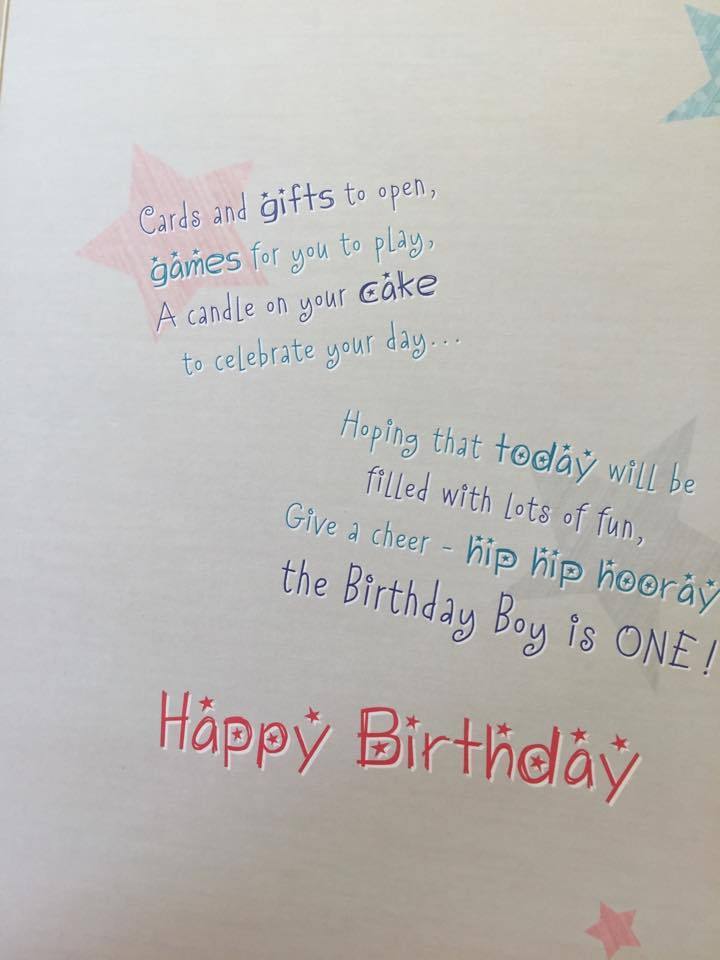 Cards and gifts to open,
games for you to play,
A candle on your cake
to celebrate your day...
Hoping that today will be
filled with lots of fun,
Give a cheer - hip hip hooray
the Birthday Boy is ONE!
Happy Birthday